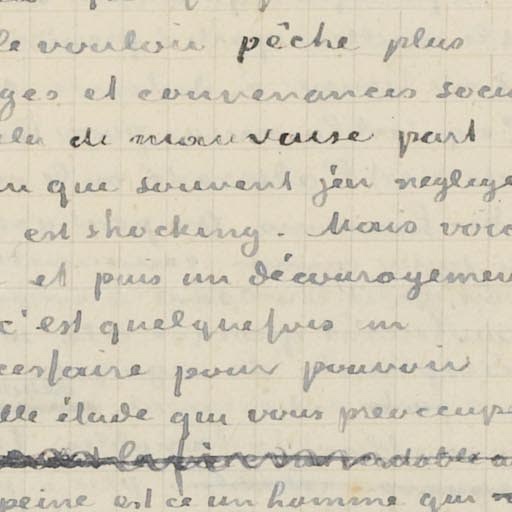 le vouloir pêche plus
ges et convenances soci
de mauvaise part
que souvent j'en neglige
est shocking. Mais voic
et puis un découragemen
c'est quelquefois un
cessaire pour pouvoir
lle étude qui vous preoccupe
peine est ce un homme qui